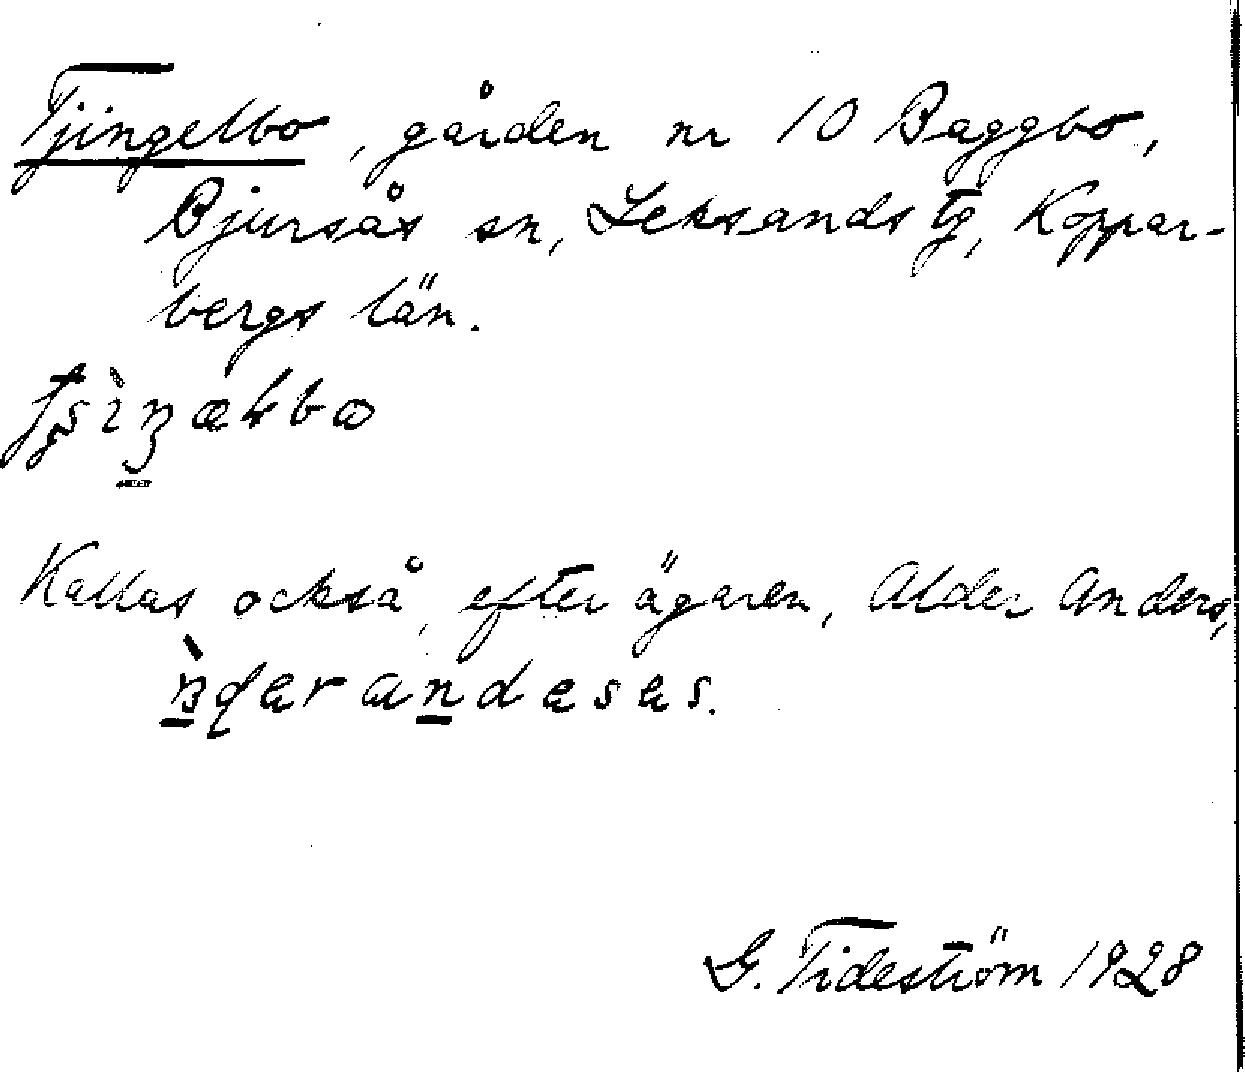 Tjingelbo, gården nr 10 Baggbo,
Bjursås sn, Leksands tg, Koppar-
bergs län.
Kallas också, efter ägaren, Alder Anders,
G. Tideström 1928